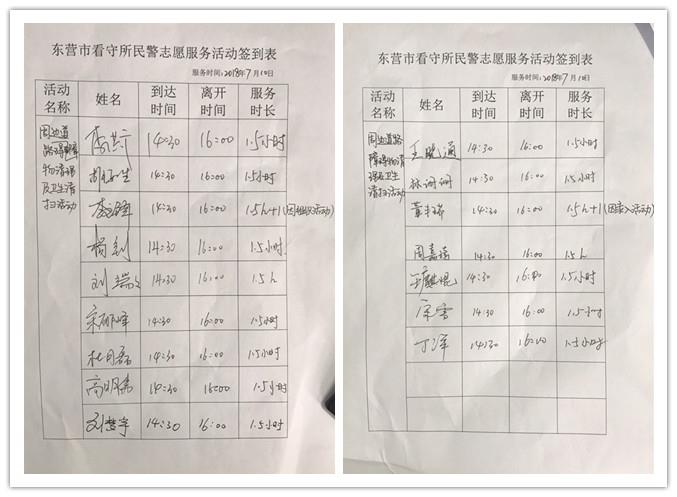 东营市看守所民警志愿服务活动签到表
服务时间:2018年7月10日
活动名称 姓名 到达时间 离开时间 服务时长
周边道
路障碍
物清理
及卫生清
扫活动
14:30 16:00 1.5小时
14:30 16:00 1.5小时
14:30 16:00 1.5h+1(因组织活动)
杨剑 14:30 16:00 1.5小时
刘瑞 14:30 16:00 1.5h
宋丽峰 14:30 16:00 1.5小时
杜月磊 14:30 16:00 1.5小时
高明 14:30 16:00 1.5小时
刘慧宇 14:30 16:00 1.5小时
东营市看守所民警志愿服务活动签到表
服务时间:2018年7月10日
活动名称 姓名 到达时间 离开时间 服务时长
周边道路
障碍物清
理及卫生
清扫活动
王晓通 14:30 16:00 1.5小时
林珊珊 14:30 16:00 1.5小时
14:30 16:00 1.5h+1(因录入活动)
周嘉 14:30 16:00 1.5h
14:30 16:00 1.5小时
宋雪 14:30 16:00 1.5小时
丁洋 14:30 16:00 1.5小时